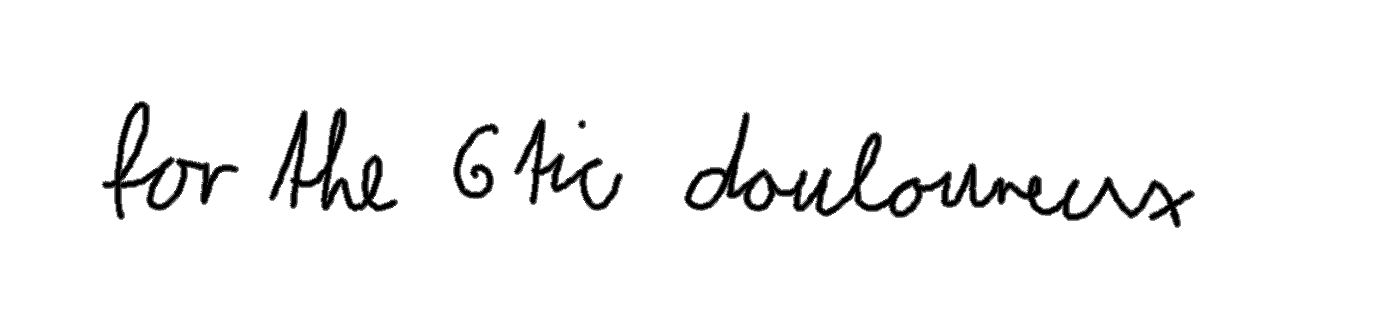 for the 6 tic douloureux